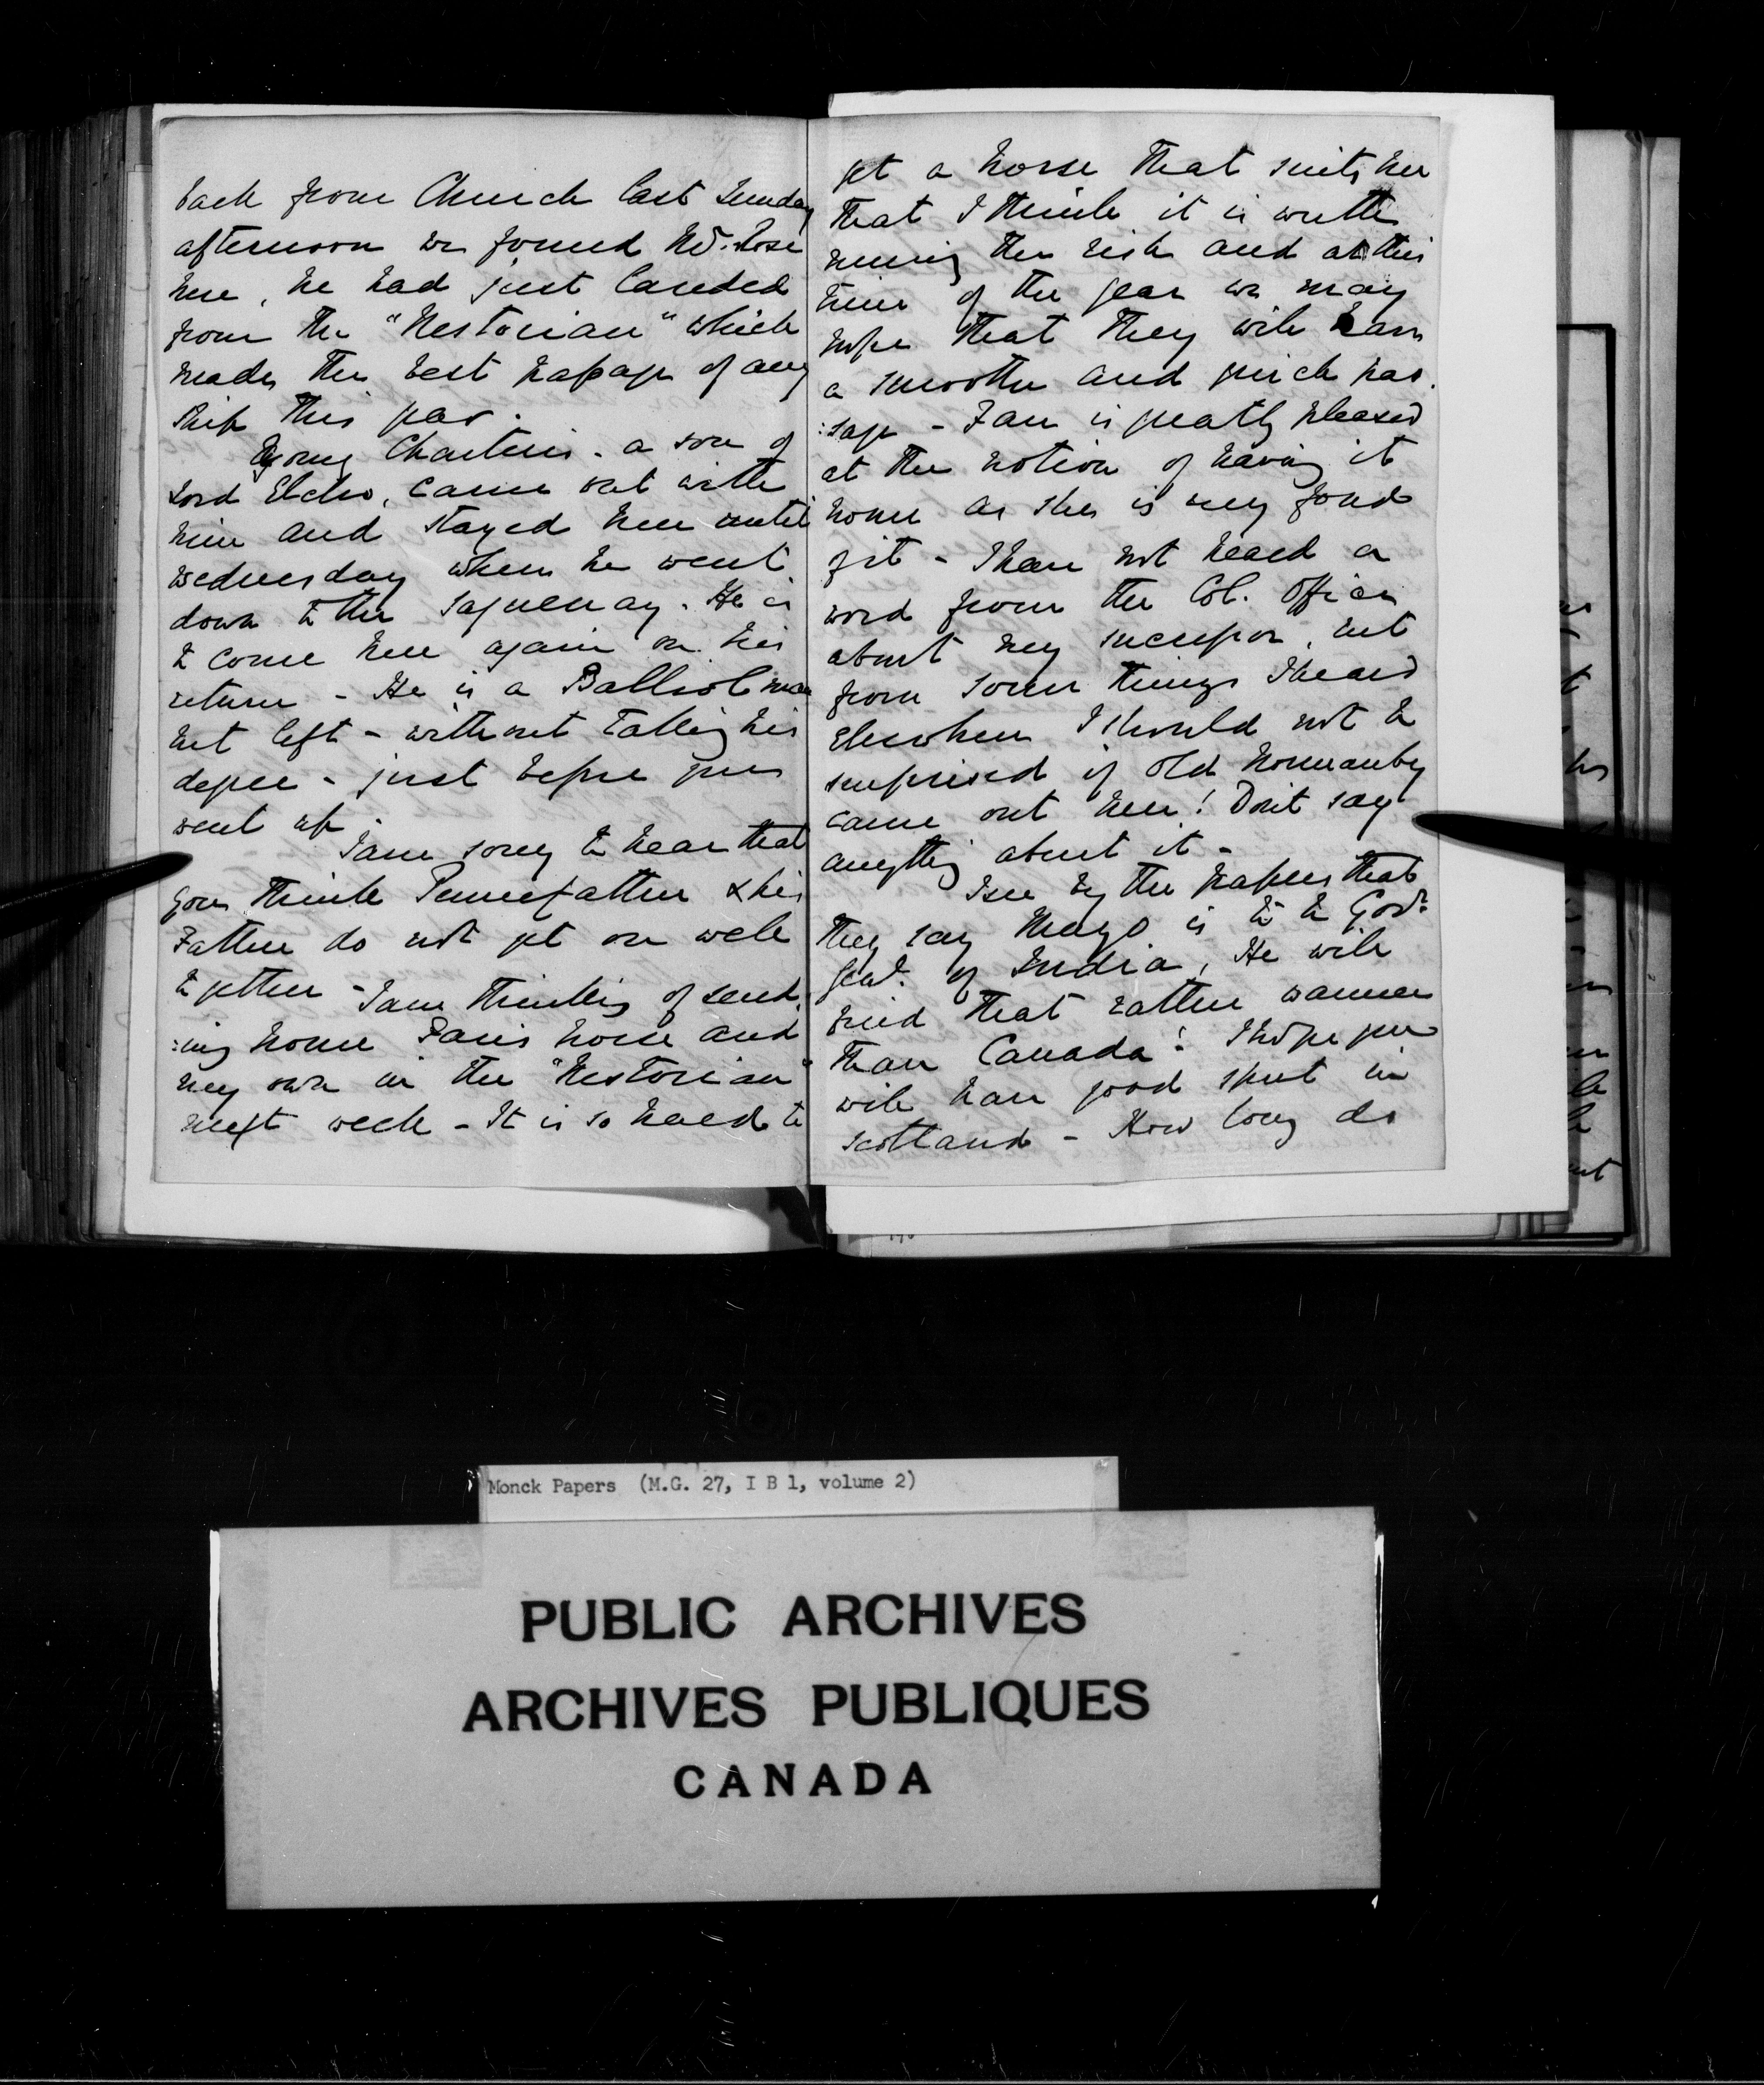 back from Church last Sunday
afternoon we found Rose
here, he had just landed
from the "Nestorian" which
made the best passage of any
ship this year.
Young Charteris - a son of
Lord Elcho, came out with
him and stayed here until
Wednesday when he went
down to the Saguenay. He is
to come here again on his
return - He is a Balliol man
but left - without taking his
degree - just before you
went up.
I am sorry to hear that
you think Pennefather & his
Father do not get on well
together - I am thinking of send
:ing home Fan's horse and
my own in the "Nestorian"
next week - It is so hard to
get a horse that suits her
that I think it is worth
running the risk and at this
time of the year we may
hope that they will have
a smooth and quick pas
:sage - Fan is greatly pleased
at the notion of having it
home as she is very fond
of it - I have not heard a
word from the Col. Office
about my successor, but
from some things I heard
elsewhere I should not be
surprised if old Normanby
came out here! Don't say
anything about it -
I see by the papers that
they say Mayo is to be Govr
Genl. of India, He will
find that rather warmer
than Canada! I hope you
will have good sport in
Scotland - How long do
Monck Papers (M.G. 27, I B 1, volume 2)
PUBLIC ARCHIVES
ARCHIVES PUBLIQUES
CANADA